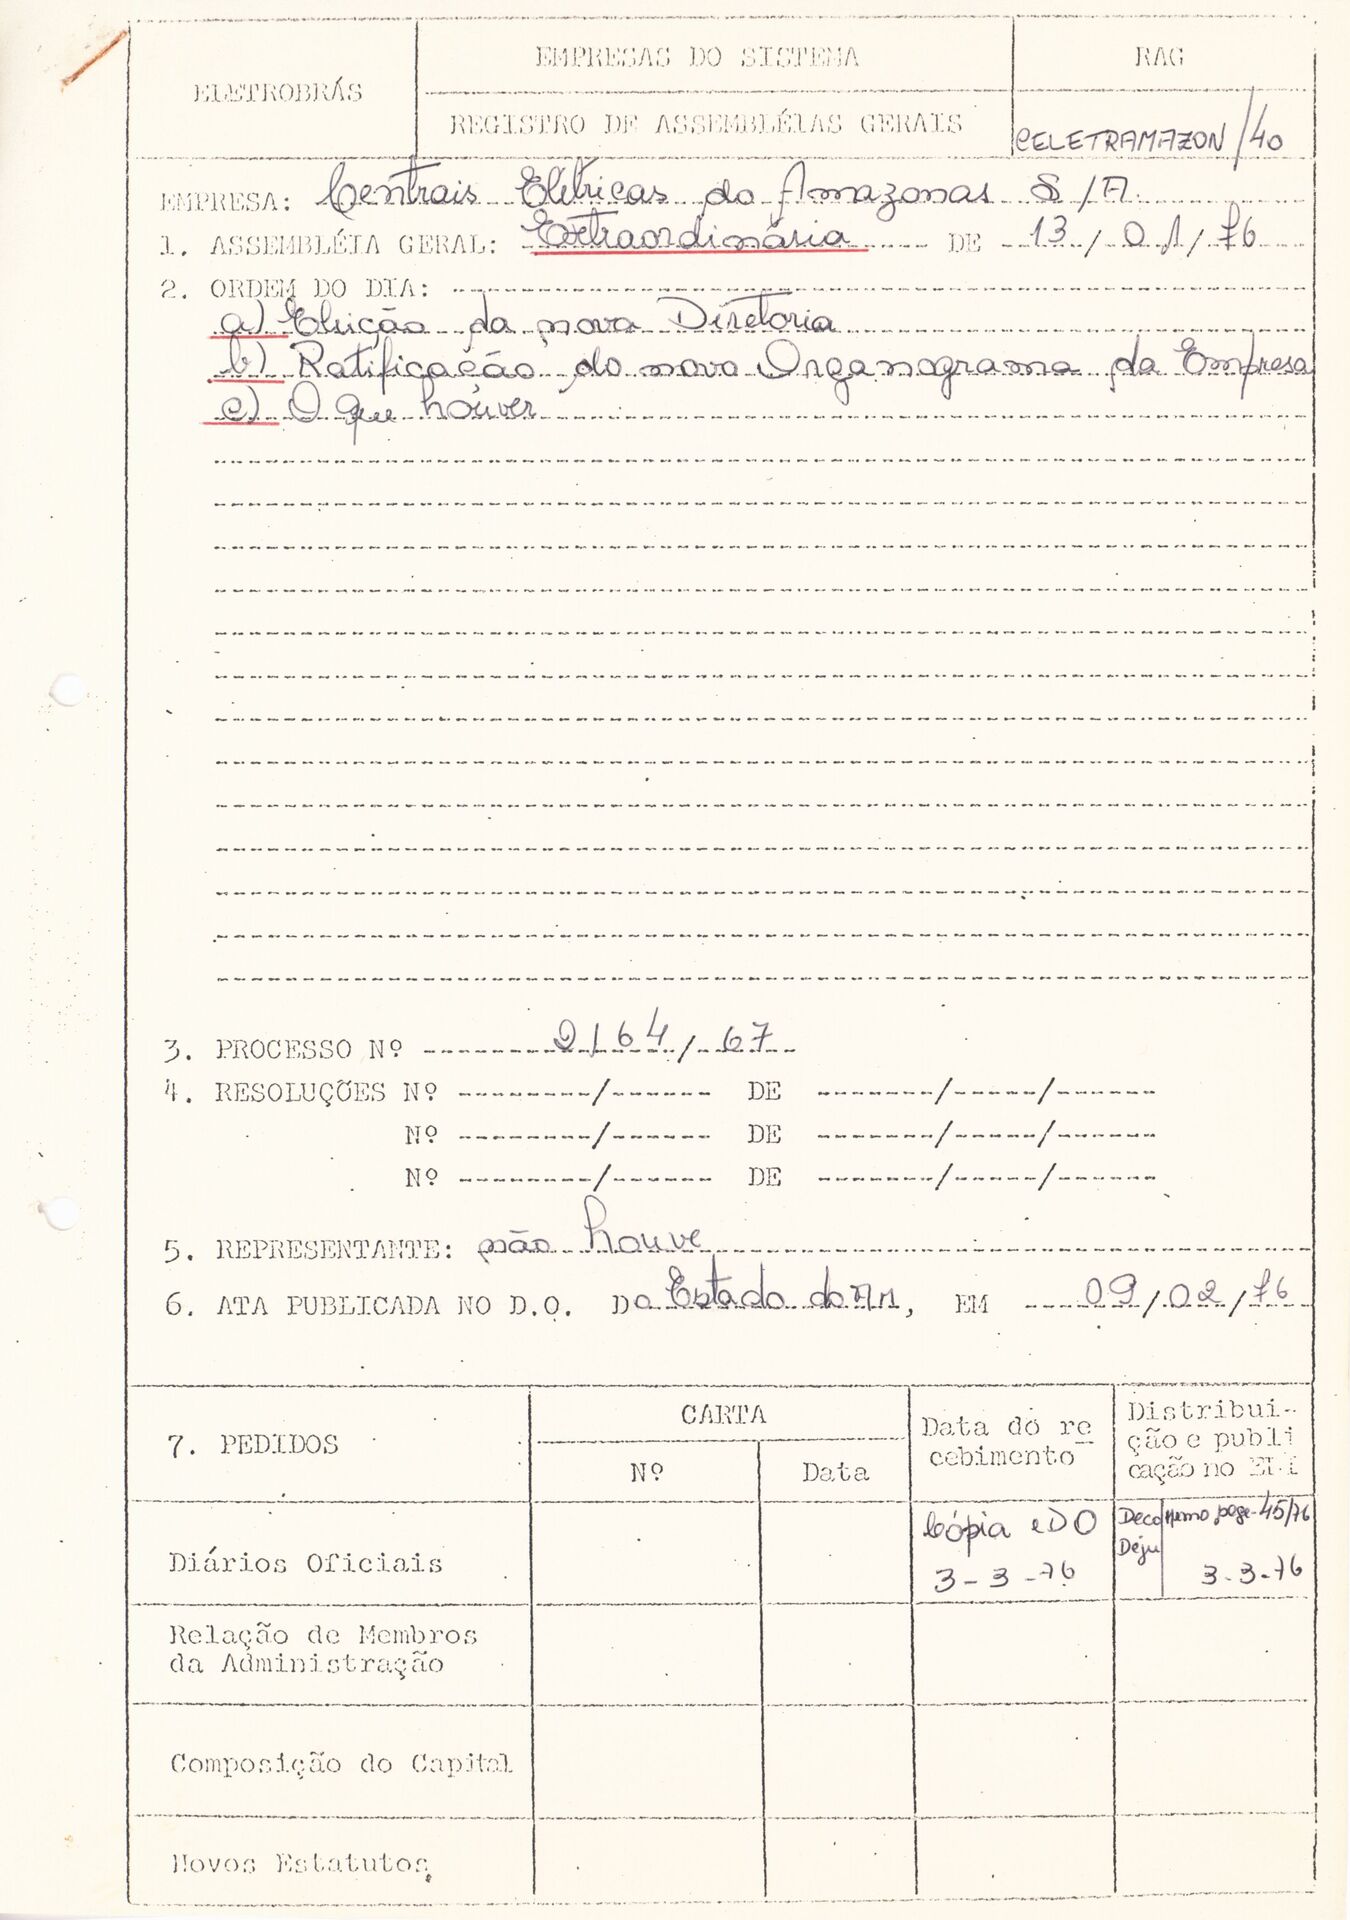 ELETROBRÁS
EMPRESAS DO SISTEMA
REGISTRO DE ASSEMBLÉIAS GERAIS
RAG
CELETRAMAZON/40
EMPRESA: Centrais Elétricas do Amazonas S/A.
1. ASSEMBLÉIA GERAL: Extraordinária DE 13/01/76
2. ORDEM DO DIA:
a) Eleição da nova Diretoria
b) Ratificação do novo Organograma da Empresa
c) O que houver
3. PROCESSO Nº 2164/67
4. RESOLUÇÕES Nº / DE / /
Nº / DE / /
Nº / DE / /
5. REPRESENTANTE: não houve
6. ATA PUBLICADA NO D.O. Do Estado do Am, EM 09/02/76
7. PEDIDOS
CARTA
Nº
Data
Data do re
cebimento
Distribui-
ção e publi
cação no
Diários Oficiais
Cópia DO
3-3-76
Deco
Deju
Memo 45/76
3-3-76
Relação de Membros
da Administração
Composição do Capital
Novos Estatutos